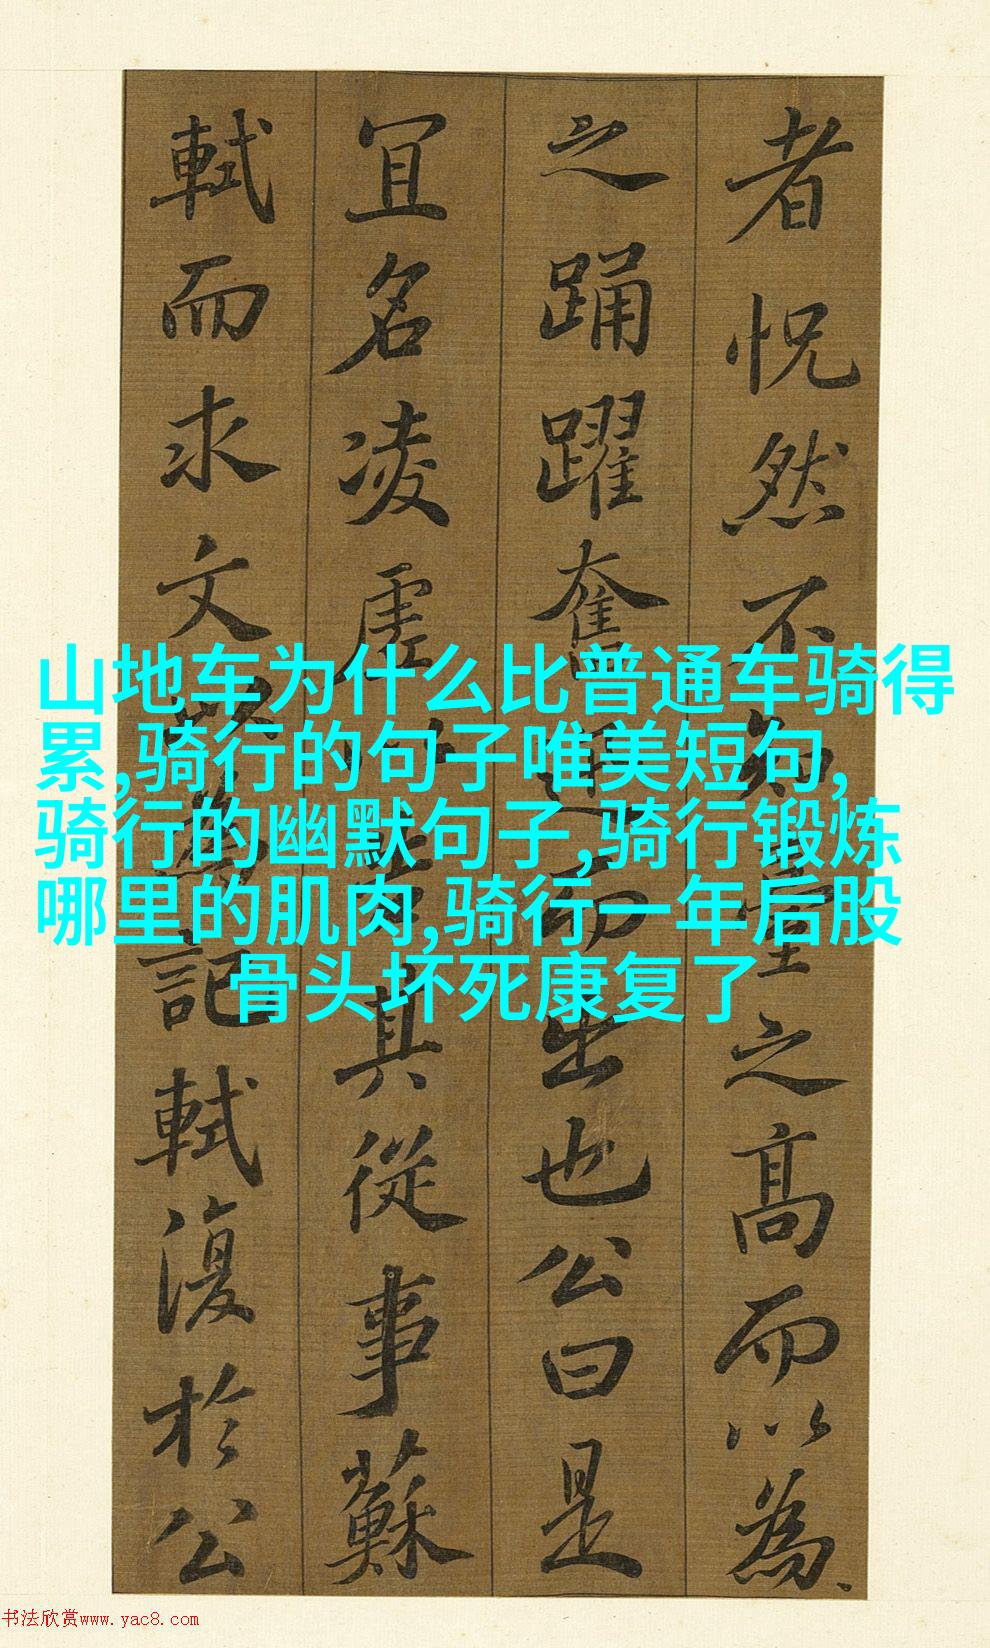 者怳然不知臺之髙而以為
之踊躍奮迅而出也公曰是
冝名凌虛以告其從事蘇
軾而求文以為記軾復於公
山地车为什么比普通车骑得
累,骑行的句子唯美短句,
骑行的幽默句子,骑行锻炼
哪里的肌肉,骑行一年后股
骨头坏死康复了
书法欣赏www.yac8.com